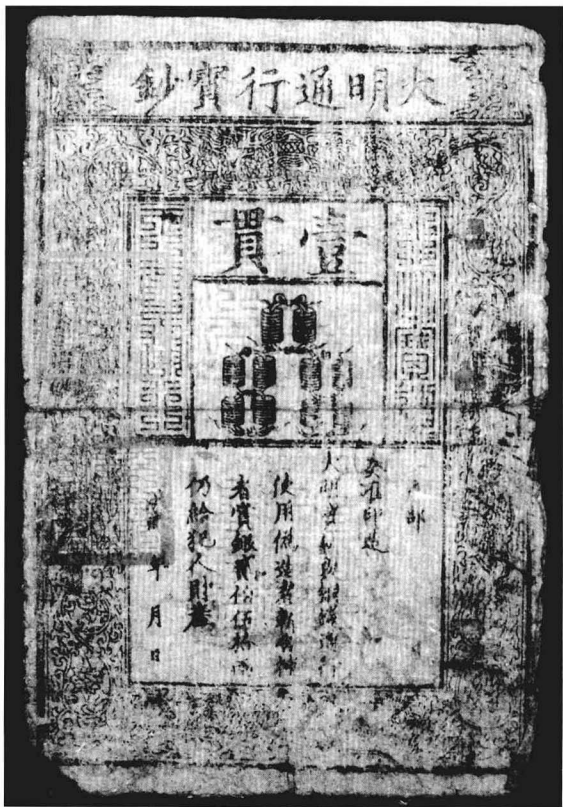 大明通行寶鈔
壹貫
大明寶鈔
部
奏准印造
大明寶鈔與銅錢通行
使用偽造者斬告捕
者賞銀貳佰伍拾兩
仍給犯人財產
年 月 日